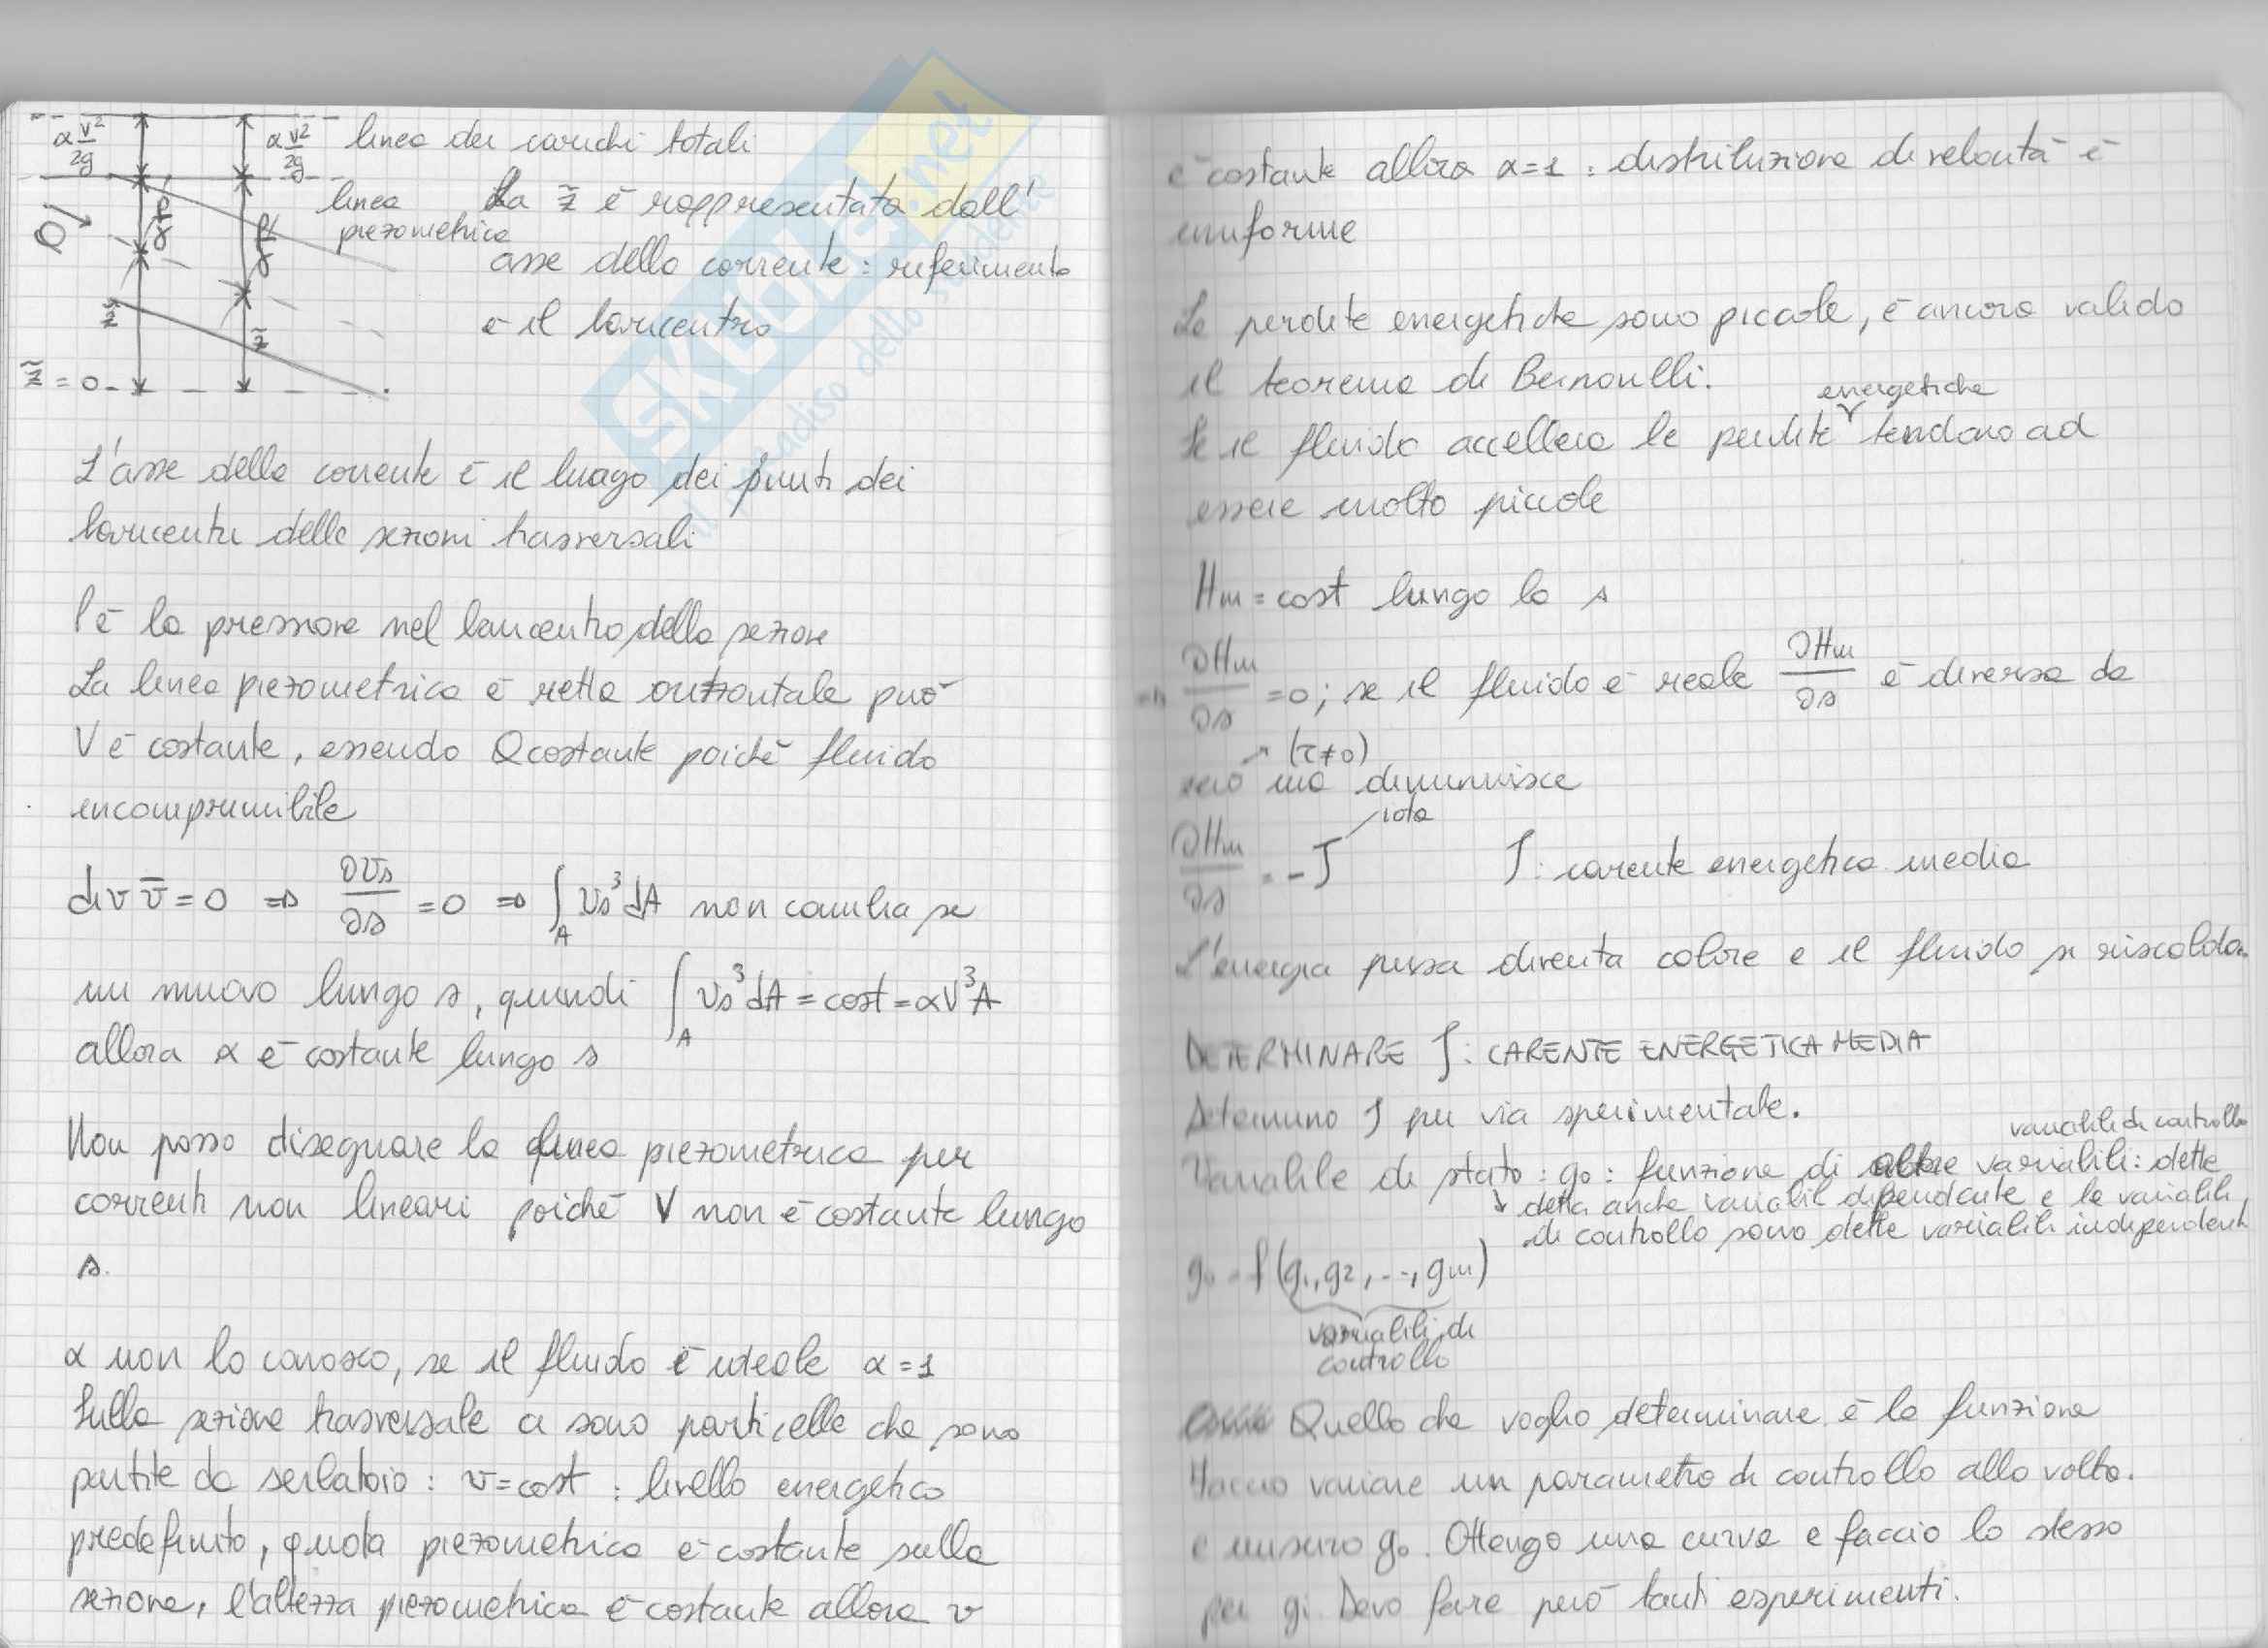 α v²/2g
α v²/2g linea dei carichi totali
linea piezometrica
La z̃ è rappresentata dall'
asse della corrente: riferimento
è il baricentro
Q
p/γ
p/γ
z̃
z̃
z̃ = 0
L'asse della corrente è il luogo dei punti dei
baricentri delle sezioni trasversali
P è la pressione nel baricentro della sezione
La linea piezometrica è retta orizzontale può
V è costante, essendo Q costante poichè fluido
incomprimibile
div v̄ = 0 ⇒ ∂vs/∂s = 0 ⇒ ∫_A vs³ dA non cambia se
mi muovo lungo s, quindi ∫_A vs³ dA = cost = αV³A
allora α è costante lungo s
Non posso disegnare la linea piezometrica per
correnti non lineari poichè V non è costante lungo
s.
α non lo conosco, se il fluido è ideale α = 1
Sulla sezione trasversale ci sono particelle che sono
partite da serbatoio: v = cost : livello energetico
predefinito, quota piezometrica è costante sulla
sezione, l'altezza piezometrica è costante allora v
è costante allora α = 1 : distribuzione di velocità è
uniforme
Le perdite energetiche sono piccole, è ancora valido
il teorema di Bernoulli.
energetiche
Se il fluido accellera le perdite tendono ad
essere molto piccole
Hm = cost lungo lo s
⇒ ∂Hm/∂s = 0; se il fluido è reale ∂Hm/∂s è diversa da
(τ≠0)
zero ma diminuisce
iota
∂Hm/∂s = -J J: carente energetica media
L'energia persa diventa calore e il fluido si riscalda.
DETERMINARE J: CARENTE ENERGETICA MEDIA
Determino J per via sperimentale.
variabili di controllo
Variabile di stato: g₀: funzione di altre variabili: dette
detta anche variabile dipendente e le variabili
di controllo sono dette variabili independenti
g₀ = f(g₁, g₂, ..., gm)
variabili di
controllo
Quello che voglio determinare è la funzione
Faccio variare un parametro di controllo alla volta.
e misuro g₀. Ottengo una curva e faccio lo stesso
per gi. Devo fare però tanti esperimenti.
SKUOLA.net
il paradiso dello studente